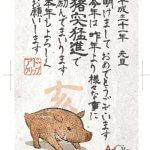 平成三十一年 元旦
明けまして おめでとうございます
本年は 昨年より様々な事に
猪突猛進で
励んでまいります
本年もよろしく
お願いします
亥